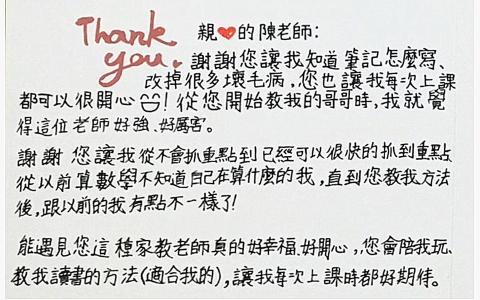 Thank you.
親❤的陳老師:
謝謝您讓我知道筆記怎麼寫、
改掉很多壞毛病,您也讓我每次上課
都可以很開心☺!從您開始教我的哥哥時,我就覺
得這位老師好強、好厲害。
謝謝您讓我從不會抓重點到已經可以很快的抓到重點
從以前算數學不知道自己在算什麼的我,直到您教我方法
後,跟以前的我有點不一樣了!
能遇見您這種家教老師真的好幸福、好開心,您會陪我玩、
教我讀書的方法(適合我的),讓我每次上課時都好期待。